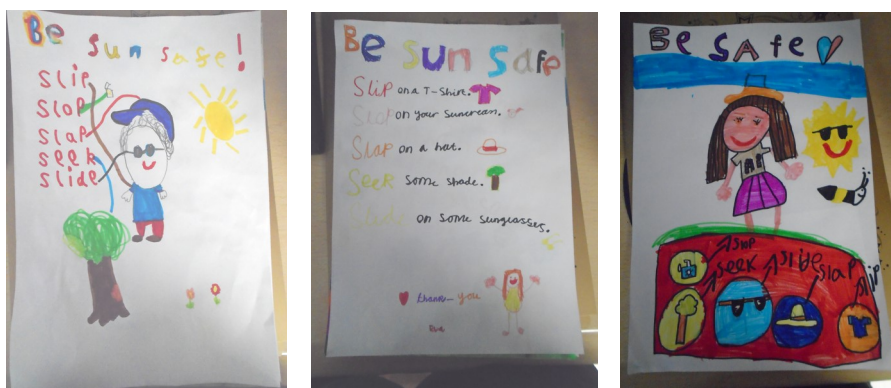 Be sun safe!
Slip
Slop
Slap
Seek
Slide
Be Sun Safe
Slip on a T-Shirt.
Slop on your suncream.
Slap on a hat.
Seek some shade.
Slide on some sunglasses.
thank-you
Be Safe
slop
seek
slide
slap
slip